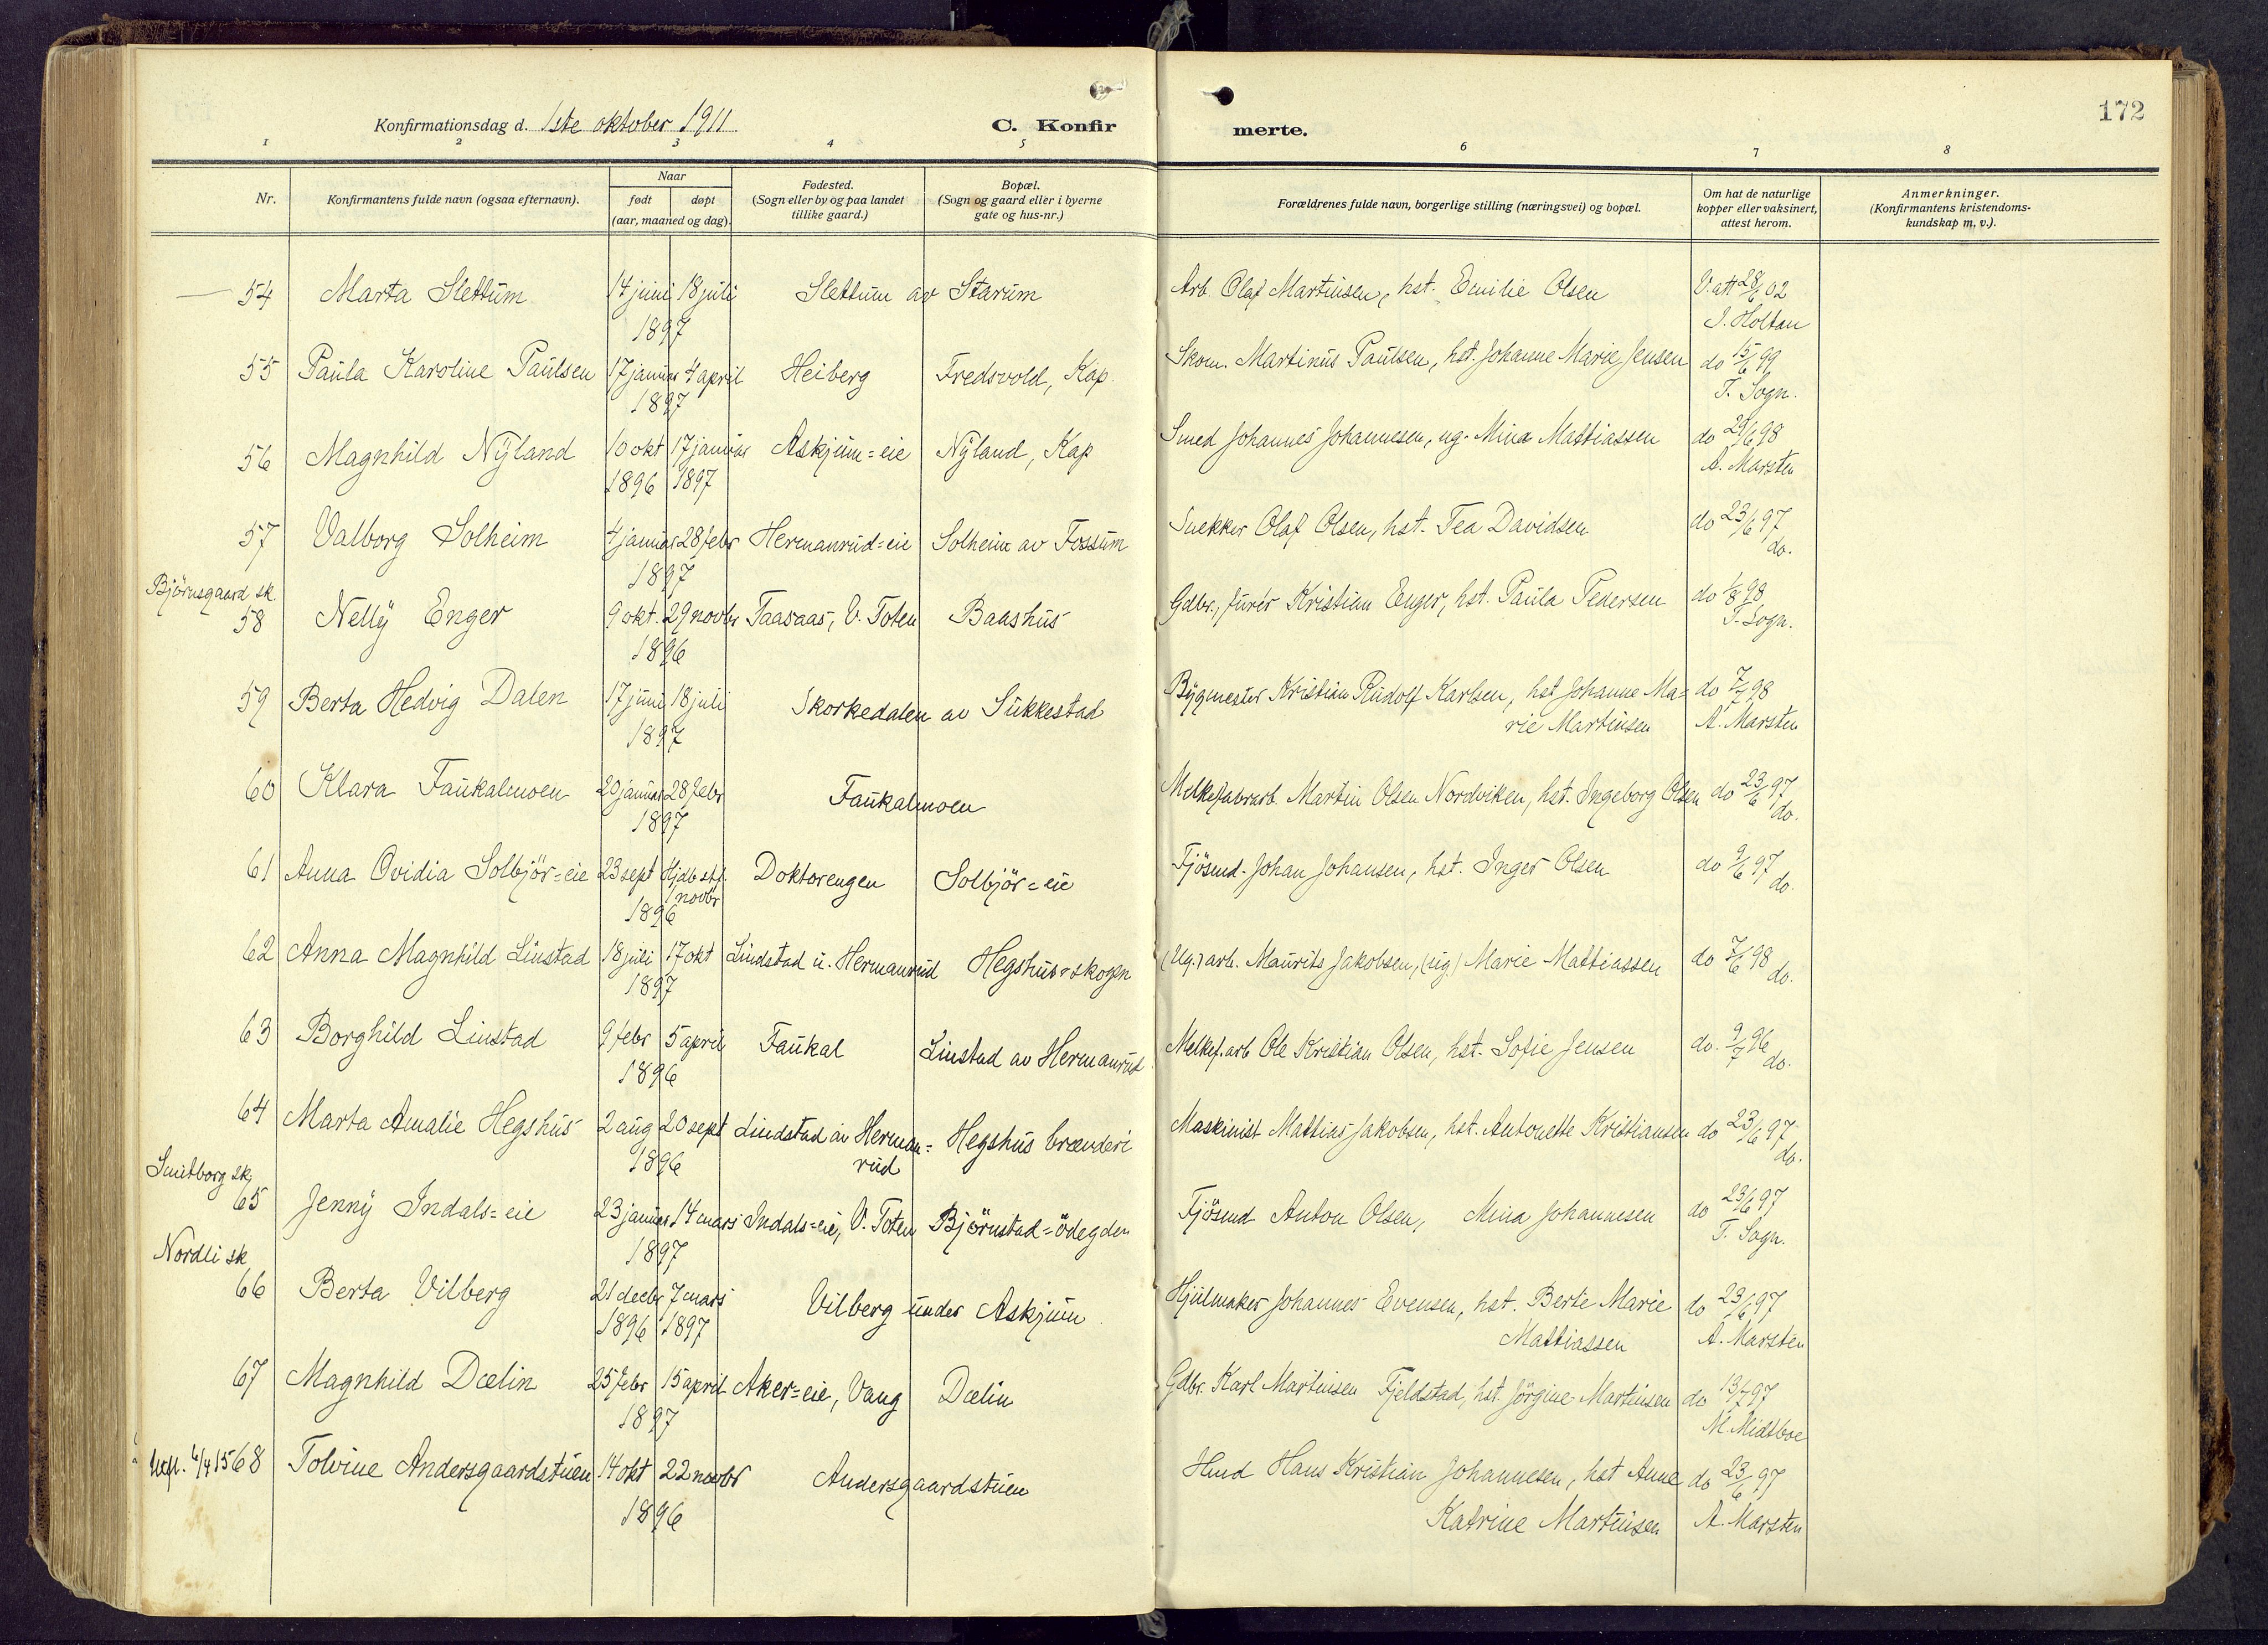 172
Konfirmationsdag d. 1ste oktober 1911 C. Konfir merte.
1 2 3 4 5 6 7 8
Nr.
Konfirmantens fulde navn (ogsaa efternavn).
Naar
født døpt
(aar, maaned og dag).
Fødested.
(Sogn eller by og paa landet
tillike gaard.)
Bopæl.
(Sogn og gaard eller i byerne
gate og hus-nr.)
Forældrenes fulde navn, borgerlige stilling (næringsvei) og bopæl.
Om hat de naturlige
kopper eller vaksinert,
attest herom.
Anmerkninger.
(Konfirmantens kristendoms-
kundskap m. v.).
54 Marta Slettum 14 juni 18 juli Slettum av Starum Arb. Olaf Martinsen, hst. Emilie Olsen V. att 28/6 02
1897 J. Holtan
55 Paula Karoline Paulsen 17 januar 4 april Heiberg Fredsvold, Kap. Skom. Martinus Paulsen, hst. Johanne Marie Jensen do 15/6 99
1897 T. Sogn.
56 Magnhild Nyland 10 okt 17 januar Askjum=eie Nyland, Kap Smed Johannes Johannesen, ug. Mina Mattiassen do 29/6 98
1896 1897 A. Marsten
57 Valborg Solheim 4 januar 28 febr Hermanrud=eie Solheim av Fossum Snekker Olaf Olsen, hst. Tea Davidsen do 23/6 97
1897 do.
Björnsgaard sk.
58 Nelly Enger 9 okt. 29 novbr Taasaas, V. Toten Baashus Gdbr., furér Kristian Enger, hst. Paula Pedersen do 1/8 98
1896 T. Sogn.
59 Berta Hedvig Dalen 17 juni 18 juli Skorkedalen av Sukkestad Bygmester Kristian Rudolf Karlsen, hst Johanne Ma= do 7/7 98
1897 rie Martinsen A. Marsten
60 Klara Faukalmoen 20 januar 28 febr Faukalmoen Melkefabrarb. Martin Olsen Nordviken, hst. Ingeborg Olsen do 23/6 97
1897 do.
61 Anna Ovidia Solbjör=eie 23 sept Hjdb stf. Doktorengen Solbjör=eie Fjösmd. Johan Johansen, hst. Inger Olsen do 9/6 97
1896 1 novbr do.
62 Anna Magnhild Linstad 18 juli 17 okt Lindstad u. Hermanrud Hegshus=skogen (Ug.) arb. Maurits Jakobsen, (ug.) Marie Mattiassen do 7/6 98
1897 do.
63 Borghild Linstad 9 febr 5 april Faukal Linstad av Hermanrud Melkef.arb Ole Kristian Olsen, hst. Sofie Jensen do. 9/7 96
1896 do.
64 Marta Amalie Hegshus 2 aug 20 sept Lindstad av Herman= Hegshus brænderi Maskinist Mattias Jakobsen, hst. Antonette Kristiansen do 23/6 97
1896 rud do.
Smitborg sk.
65 Jenny Indals=eie 23 januar 14 mars Indals=eie, V. Toten Björnstad=ödegden Fjösmd Anton Olsen, Mina Johannesen do 23/6 97
1897 T. Sogn.
Nordli sk
66 Berta Vilberg 21 decbr 7 mars Vilberg under Askjum Hjulmaker Johannes Evensen, hst. Berte Marie do 23/6 97
1896 1897 Mattiassen A. Marsten
67 Magnhild Dælin 25 febr 15 april Aker=eie, Vang Dælin Gdbr. Karl Martinsen Fjeldstad, hst. Jörgine Martinsen do 13/7 97
1897 M. Midtbøe
6/4 15 68 Tolvine Andersgaardstuen 14 okt 22 novbr Andersgaardstuen Hmd Hans Kristian Johannesen, hst Anne do 23/6 97
1896 Katrine Martinsen A. Marsten